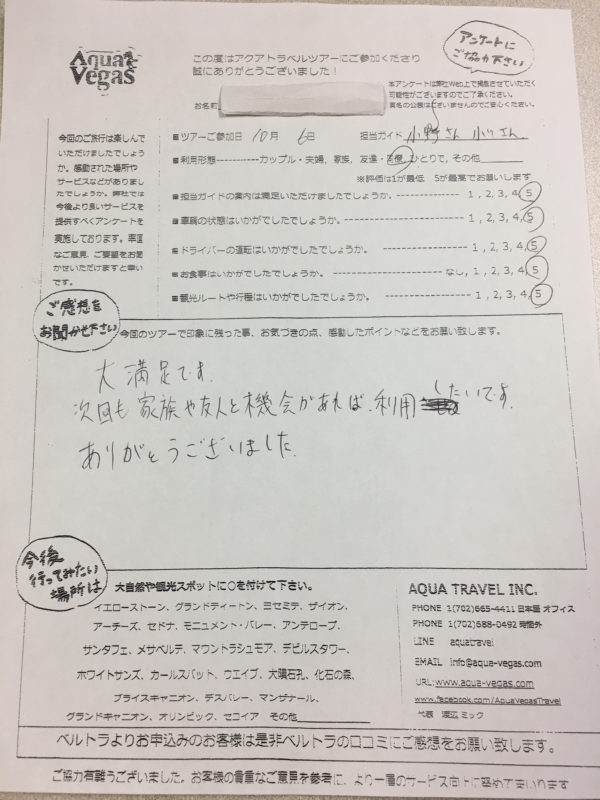 Aqua Vegas
この度はアクアトラベルツアーにご参加くださり
誠にありがとうございました！
アンケートに
ご協力下さい
本アンケートは弊社Web上で掲載させていただく
可能性がございますのでご了承ください。
実名の公表はございませんのでご安心ください。
お名前
今回のご旅行は楽しんで
いただけましたでしょう
か。感動された場所や
サービスなどがありまし
たでしょうか。弊社では
今後より良いサービスを
提供すべくアンケートを
実施しております。率直
なご意見、ご要望をお聞
かせいただけますと幸い
です。
■ツアーご参加日 10月 6日 担当ガイド 小野さん
■利用形態-----------カップル・夫婦、家族、友達・同僚、ひとりで、その他
※評価は1が最低 5が最高でお願いします
■担当ガイドの案内は満足いただけましたでしょうか。 1，2，3，4，5
■車輌の状態はいかがでしたでしょうか。 1，2，3，4，5
■ドライバーの運転はいかがでしたでしょうか。 1，2，3，4，5
■お食事はいかがでしたでしょうか。 なし，1，2，3，4，5
■観光ルートや行程はいかがでしたでしょうか。 1，2，3，4，5
ご感想を
お聞かせ下さい
今回のツアーで印象に残った事、お気づきの点、感動したポイントなどをお願い致します。
大満足です。
次回も家族や友人と機会があれば、利用したいです。
ありがとうございました。
今後
行ってみたい
場所は
大自然や観光スポットに○を付けて下さい。
イエローストーン、グランドティートン、ヨセミテ、ザイオン、
アーチーズ、セドナ、モニュメント・バレー、アンテロープ、
サンタフェ、メサベルデ、マウントラシュモア、デビルスタワー、
ホワイトサンズ、カールスバット、ウエイブ、大隕石孔、化石の森、
ブライスキャニオン、デスバレー、マンザナール、
グランドキャニオン、オリンピック、セコイア その他
AQUA TRAVEL INC.
PHONE 1(702)665-4411 日本語 オフィス
PHONE 1(702)688-0492 時間外
LINE aquatravel
EMAIL info@aqua-vegas.com
URL:www.aqua-vegas.com
www.facebook.com/AquaVegasTravel
代表 渡辺 ミック
ベルトラよりお申込みのお客様は是非ベルトラの口コミにご感想をお願い致します。
ご協力有難うございました。お客様の貴重なご意見を参考に、より一層のサービス向上に努めてまいります